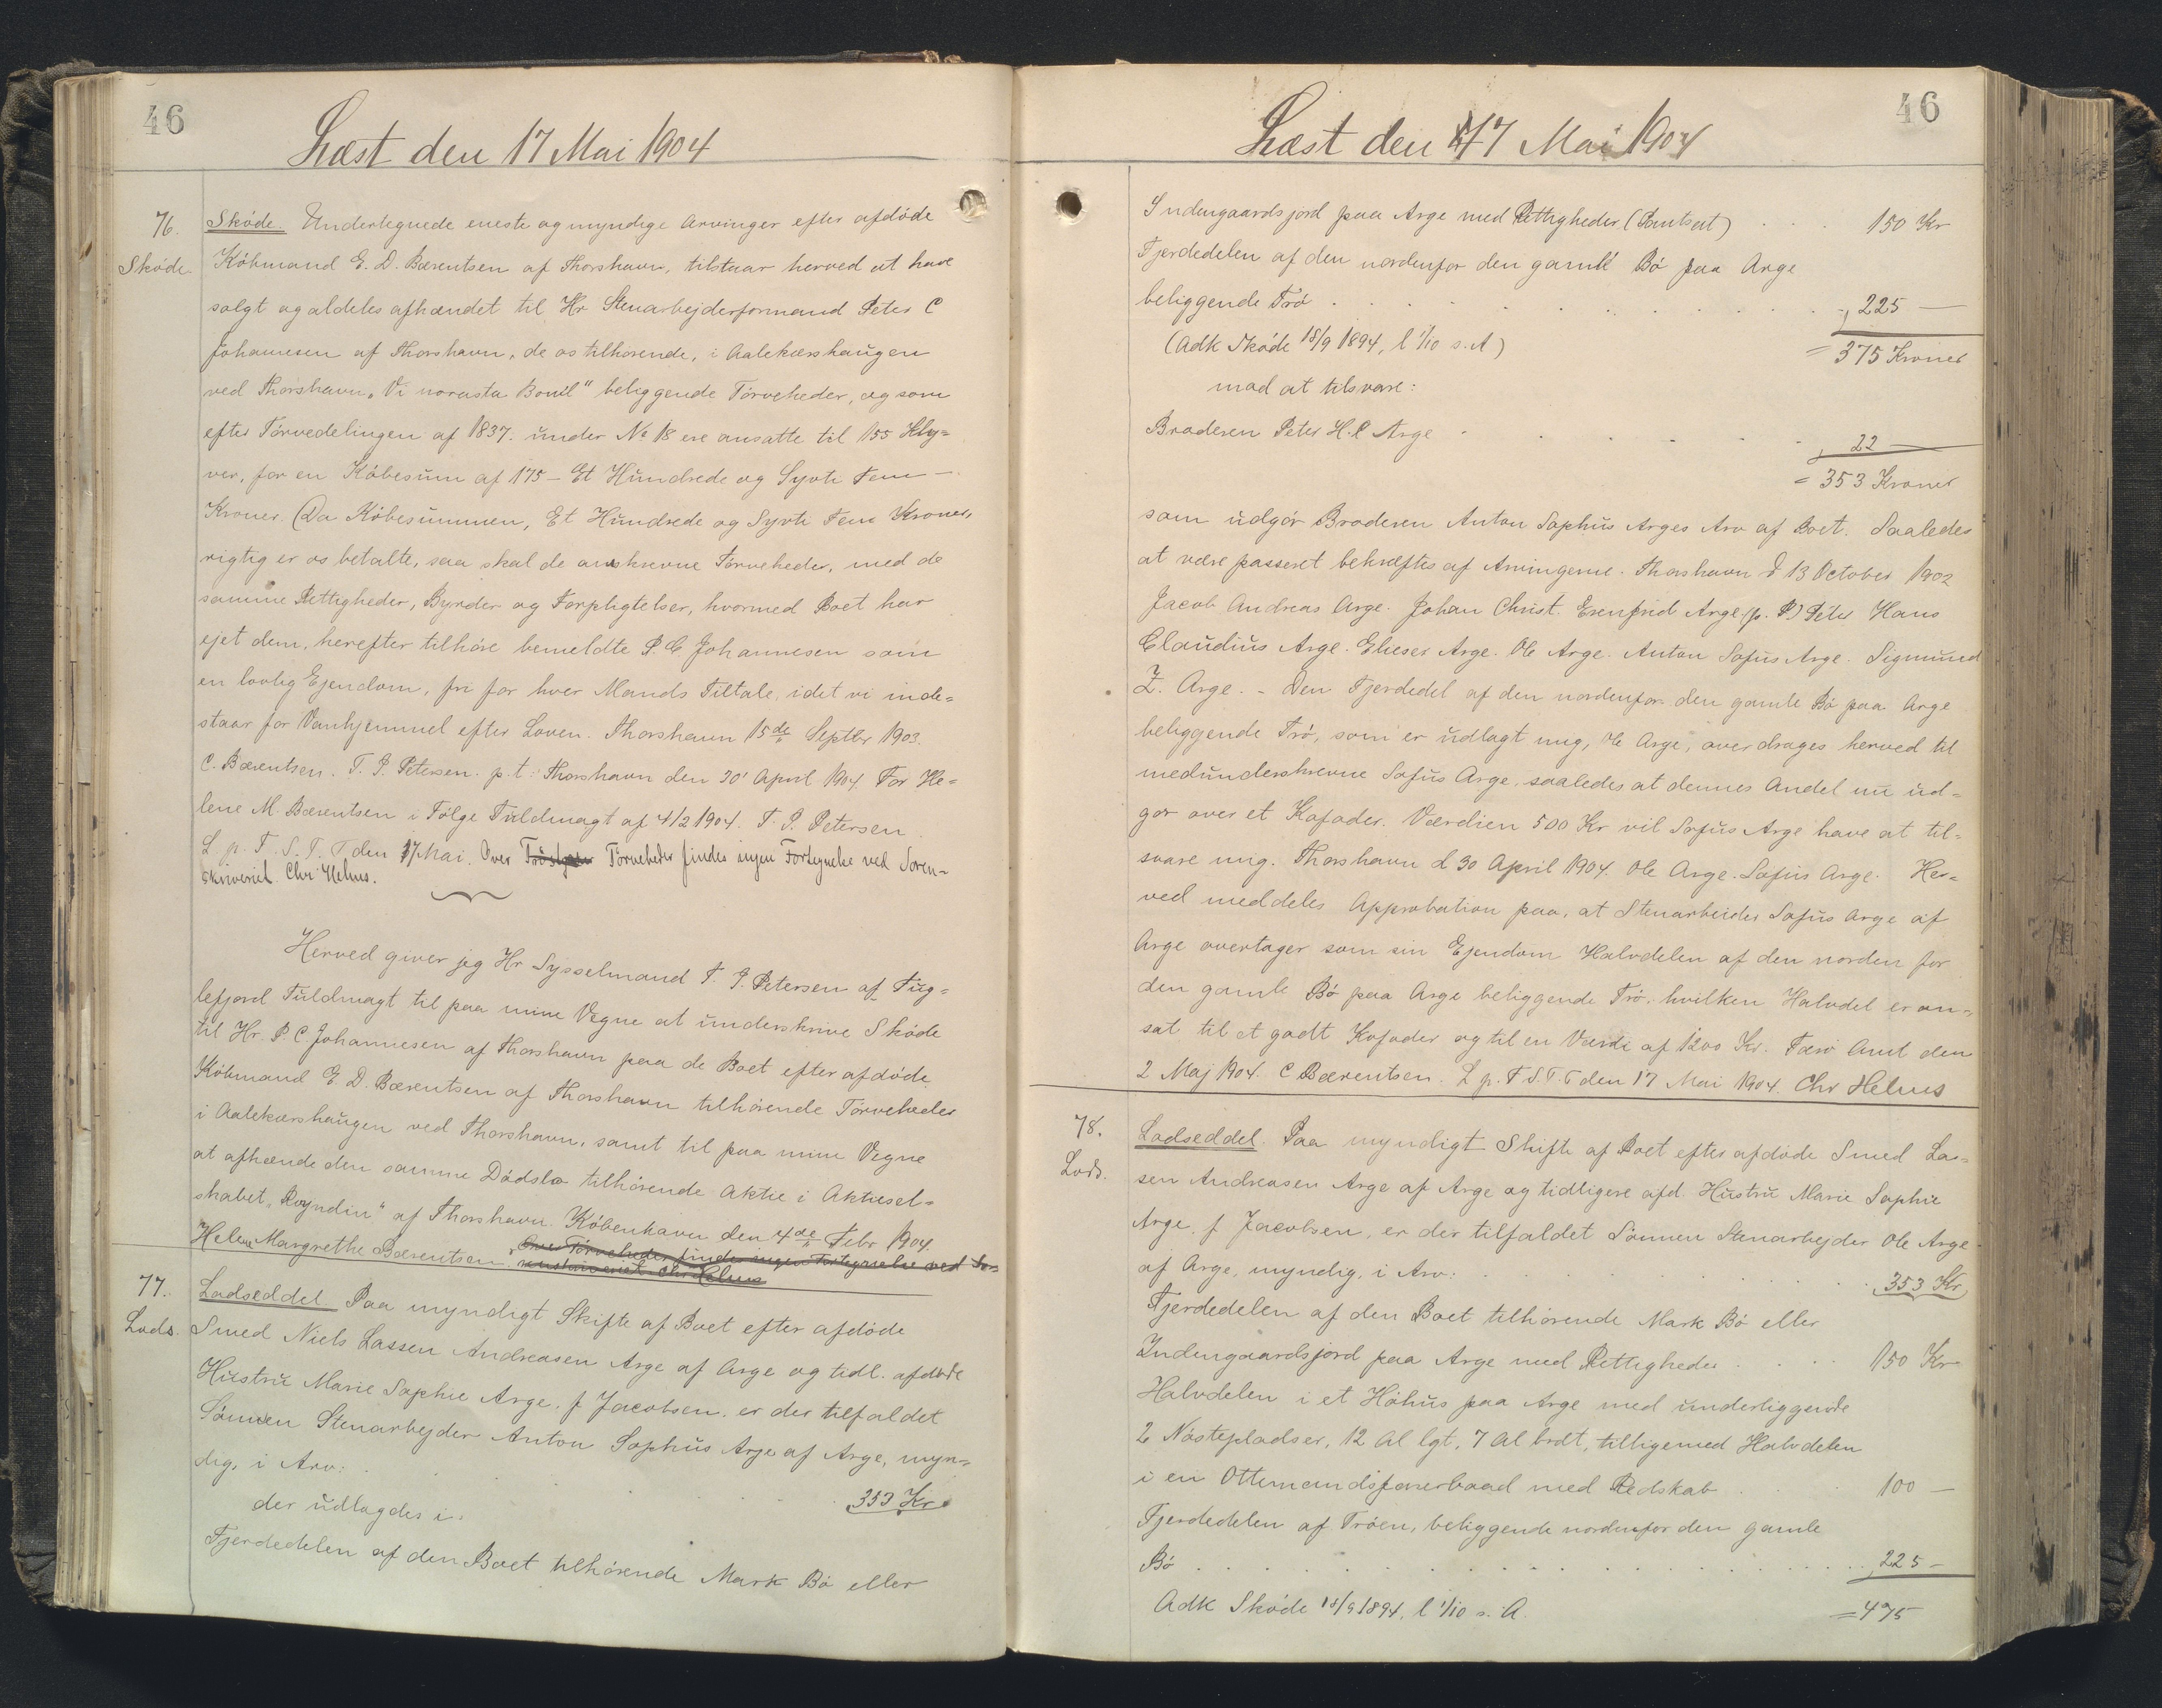 46
Læst den 17 Mai 1904
76.
Skøde.
Skøde. Undertegnede eneste og myndige Arvinger efter afdøde
Købmand E. D. Bærentsen af Thorshavn, tilstaar herved at have
solgt og aldeles afhændet til Hr Stenarbejderformand Peter C
Johannesen af Thorshavn, de os tilhørende, i Aalekærshaugen
ved Thorshavn, "Vi norasta Bomil" beliggende Tørveheder, og som
efter Tørvedelingen af 1837. under № 18 ere ansatte til 155 Kly=
ver, for en Købesum af 175 - Et Hundrede og Syvti Fem -
Kroner. (Da Købesummen, Et Hundrede og Syvti Fem Kroner,
rigtig er os betalte, saa skal de anskrevne Tørveheder, med de
samme Rettigheder, Byrder og Forpligtelser, hvormed Boet har
ejet dem, herefter tilhøre bemeldte P. C Johannesen som
en lovlig Ejendom, fri for hver Mands Tiltale, idet vi inde=
staar for Vanhjemmel efter Loven. Thorshavn 15de Septbr 1903.
C. Bærentsen. T. P. Petersen. p.t. Thorshavn den 30' April 1904. For He=
lene M. Bærentsen i Følge Fuldmagt af 4/2 1904. T. P. Petersen.
L. p. F. S. T. T den 17 Mai. Over Tørveheder findes ingen Fortegnelse ved Soren-
skriveriet. Chr Helms.
Herved giver jeg Hr Sysselmand T. P. Petersen af Fug=
lefjord Fuldmagt til paa mine Vegne at underskrive Skøde
til Hr. P. C. Johannesen af Thorshavn paa de Boet efter afdøde
Købmand E. D. Bærentsen af Thorshavn tilhørende Tørveheder
i Aalekærshaugen ved Thorshavn, samt til paa mine Vegne
at afhænde den samme Dødsbo tilhørende Aktie i Aktiesel=
skabet "Royndin" af Thorshavn. København den 4de Febr 1904.
Helene Margrethe Bærentsen. Over Tørveheder findes ingen Fortegnelse ved So=
renskriveriet. Chr Helms
77.
Lods.
Lodseddel Paa myndigt Skifte af Boet efter afdøde
Smed Niels Lassen Andreasen Arge af Arge og tidl. afdøde
Hustru Marie Sophie Arge. f Jacobsen. er der tilfaldet
Sønnen Stenarbejder Anton Sophus Arge af Arge, myn=
dig, i Arv: 353 Kr.
der udlagdes i:
Fjerdedelen af den Boet tilhørende Mark Bø eller
46
Læst den 17 Mai 1904
Indengaardsjord paa Arge med Rettigheder (Pantsat) . . . 150 Kr
Fjerdedelen af den nordenfor den gamle Bø paa Arge
beliggende Trø . . . . . 225 -
(Adk Skøde 18/9 1894, l 1/10 s. A) = 375 Kroner
mod at tilsvare:
Broderen Peter H. C Arge . . . . . 22 -
= 353 Kroner
som udgør Broderen Anton Sophus Arges Arv af Boet. Saaledes
at være passeret bekræftes af Arvingerne. Thorshavn d 13 October 1902
Jacob Andreas Arge. Johan Christ. Erenfred Arge (p. P.) Peter Hans
Claudius Arge. Elieser Arge. Ole Arge. Anton Sofus Arge. Sigmund
Z. Arge. - Den Fjerdedel af den nordenfor den gamle Bø paa Arge
beliggende Trø, som er udlagt mig, Ole Arge, overdrages herved til
medunderskrevne Sofus Arge, saaledes at dennes Andel nu ud=
gør over et Kofoder. Værdien 500 Kr vil Sofus Arge have at til=
svare mig. Thorshavn d 30 April 1904. Ole Arge. Sofus Arge. Her=
ved meddeles Approbation paa, at Stenarbeider Sofus Arge af
Arge overtager som sin Ejendom Halvdelen af den norden for
den gamle Bø paa Arge beliggende Trø, hvilken Halvdel er an=
sat til et godt Kofoder og til en Værdi af 1200 Kr. Færø Amt den
2 Maj 1904. C Bærentsen. L. p. F S. T. T den 17 Mai 1904. Chr Helms
78.
Lods.
Lodseddel. Paa myndigt Skifte af Boet efter afdøde Smed Las=
sen Andreasen Arge af Arge og tidligere afd. Hustru Marie Sophie
Arge. f Jacobsen, er der tilfaldet Sønnen Stenarbejder Ole Arge
af Arge, myndig, i Arv: . . . . . 353 Kr
Fjerdedelen af den Boet tilhørende Mark Bø eller
Indengaardsjord paa Arge med Rettigheder . . . . 150 Kr
Halvdelen i et Høhus paa Arge med underliggende
2 Nøstepladser, 12 Al lgt, 7 Al brdt, tilligemed Halvdelen
i en Ottemandsfarerbaad med Redskab . . . 100 -
Fjerdedelen af Trøen, beliggende nordenfor den gamle
Bø . . . . . 225 -
Adk Skøde 18/9 1894, l 1/10 s. A. = 475